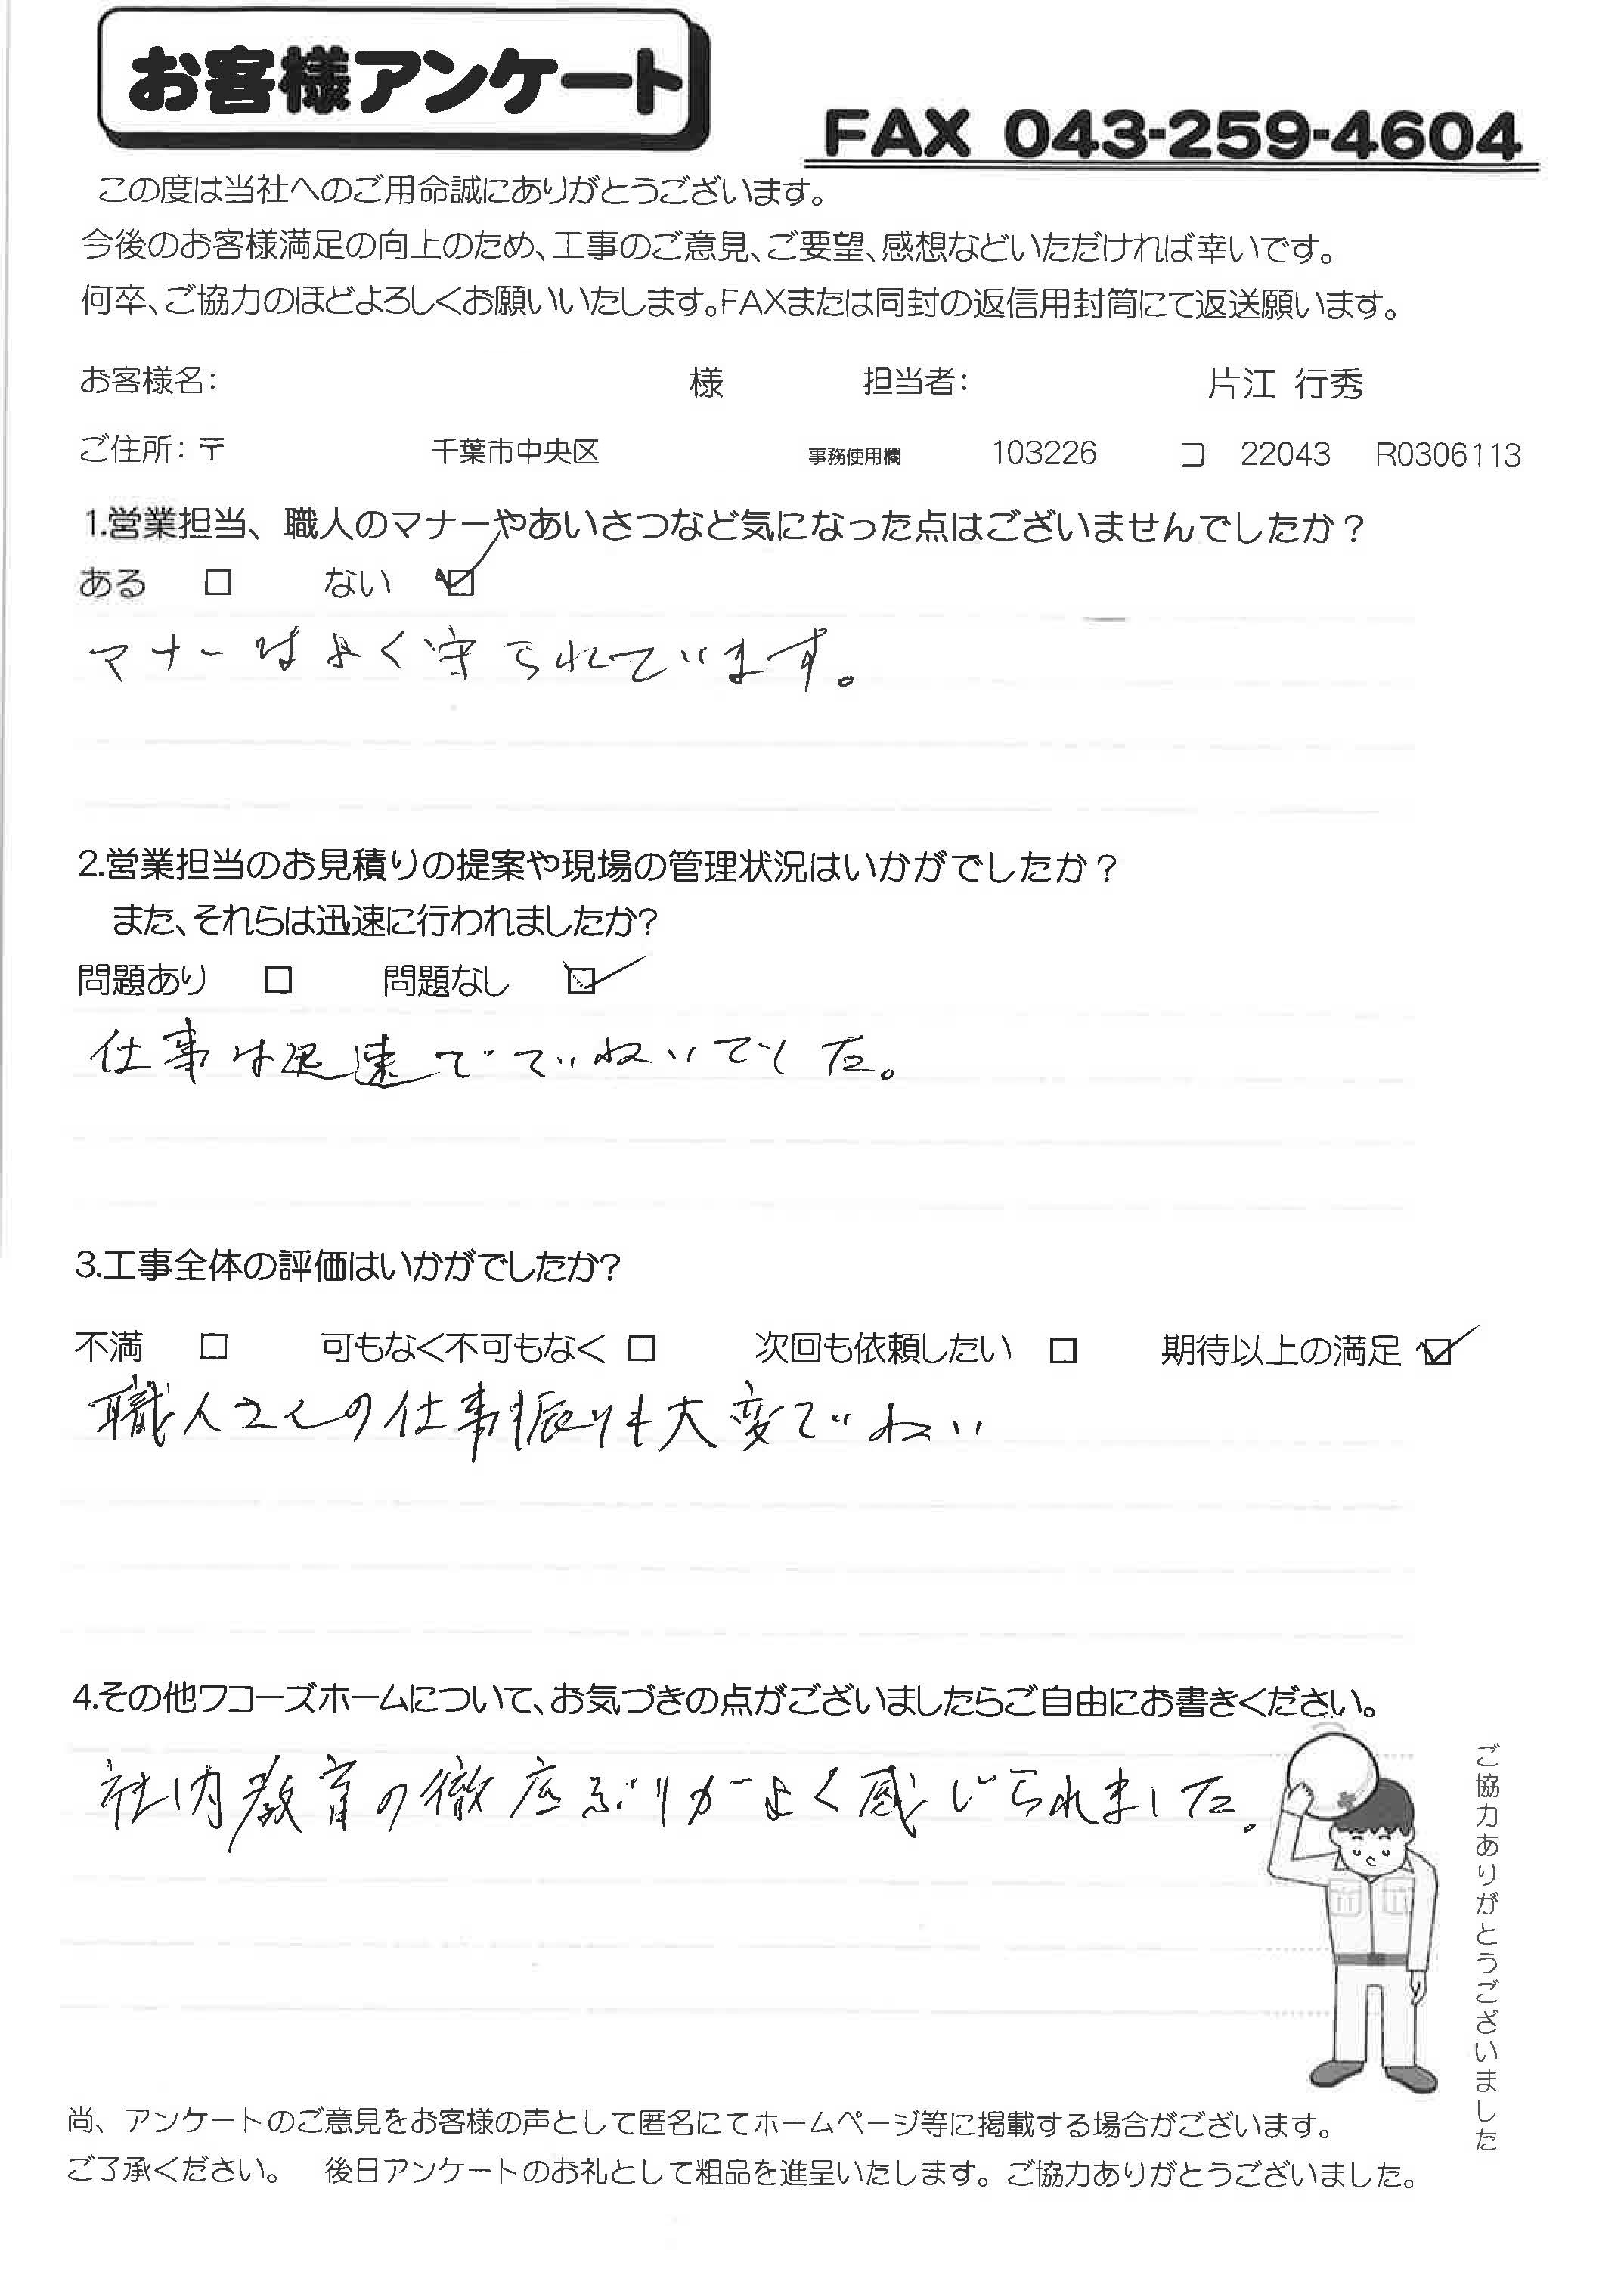 お客様アンケート
FAX 043-259-4604
この度は当社へのご用命誠にありがとうございます。
今後のお客様満足の向上のため、工事のご意見、ご要望、感想などいただければ幸いです。
何卒、ご協力のほどよろしくお願いいたします。FAXまたは同封の返信用封筒にて返送願います。
お客様名： 様 担当者： 片江 行秀
ご住所：〒 千葉市中央区 事務使用欄 103226 コ 22043 R0306113
1.営業担当、職人のマナーやあいさつなど気になった点はございませんでしたか？
ある □ ない ☑
マナーはよく守られています。
2.営業担当のお見積りの提案や現場の管理状況はいかがでしたか？
また、それらは迅速に行われましたか？
問題あり □ 問題なし ☑
仕事は迅速でていねいでした。
3.工事全体の評価はいかがでしたか？
不満 □ 可もなく不可もなく □ 次回も依頼したい □ 期待以上の満足 ☑
職人さんの仕事振りも大変ていねい
4.その他ワコーズホームについて、お気づきの点がございましたらご自由にお書きください。
社内教育の徹底ぶりがよく感じられました。
ご協力ありがとうございました
尚、アンケートのご意見をお客様の声として匿名にてホームページ等に掲載する場合がございます。
ご了承ください。 後日アンケートのお礼として粗品を進呈いたします。ご協力ありがとうございました。